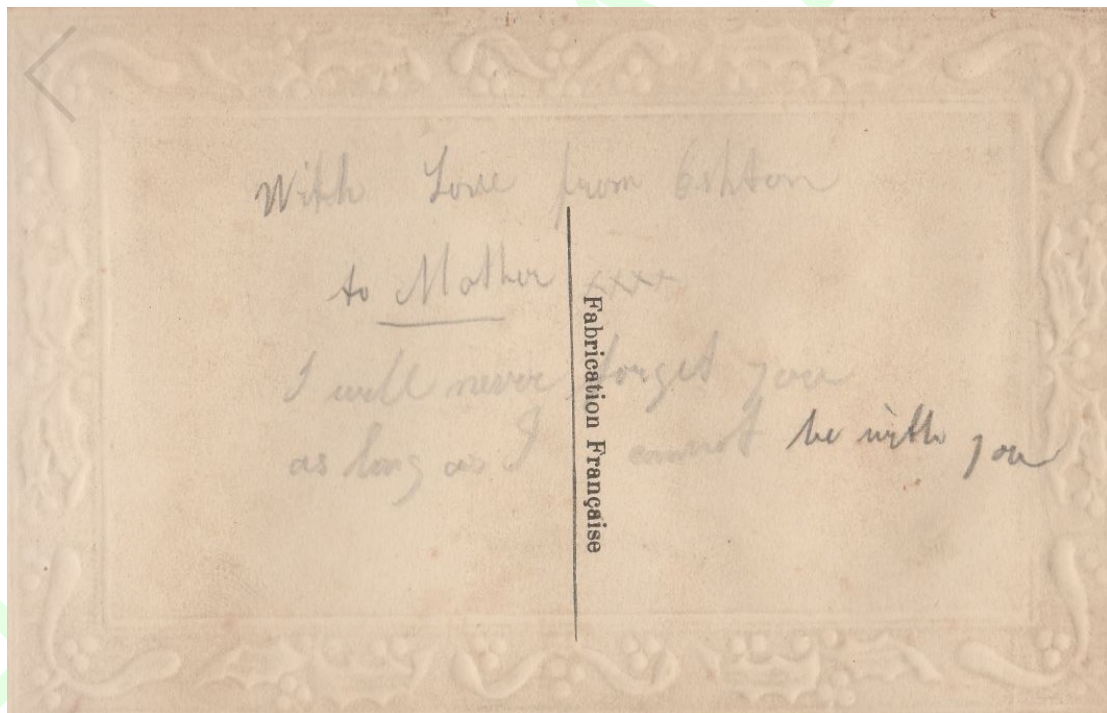 With Love from Eshton
to Mother xxxx
I will never forget you
as long as I cannot be with you
Fabrication Française